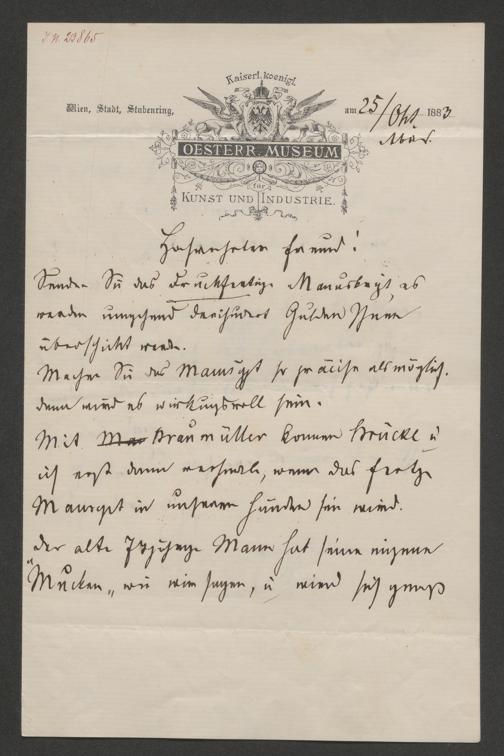 J.N. 23865
Kaiserl. koenigl.
Wien, Stadt, Stubenring,
am 25/Okt 1883
OESTERR. MUSEUM
für
KUNST UND INDUSTRIE.
Hochverehrter Freund!
Senden Sie das druckfertige Manuskript, es
werden umgehend dreihundert Gulden Ihnen
überschickt werden.
Machen Sie das Manuskpt so präcise als möglich.
dann wird es wirkungsvoll sein.
Mit Braumüller können Brücke u
ich erst dann verhandeln, wenn das fertige
Manuscpt in unseren Händen sein wird.
der alte jährige Mann hat seine eigene
"Mucken", wie wir sagen, u wird sich gewiß